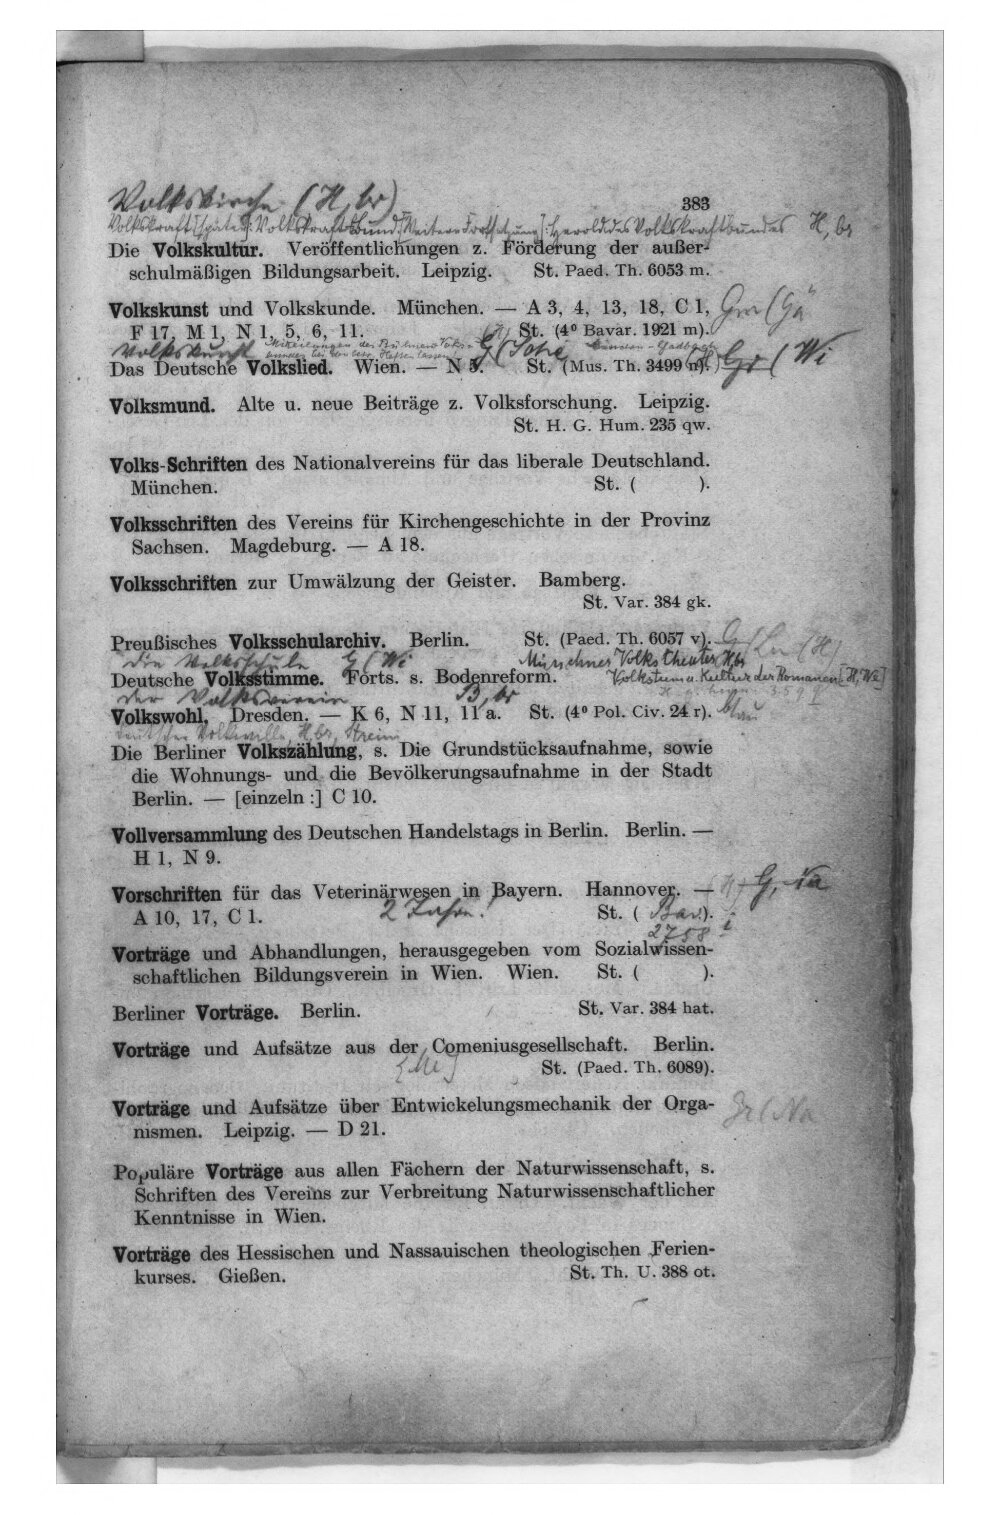 Volkskirche (H, br)
383
Volkskraft [später:] Volkskraftbund [Weitere Fortsetzung]: Herold des Volkskraftbundes H, br
Die Volkskultur. Veröffentlichungen z. Förderung der außer-
schulmäßigen Bildungsarbeit. Leipzig. St. Paed. Th. 6053 m.
Volkskunst und Volkskunde. München. — A 3, 4, 13, 18, C 1,
F 17, M 1, N 1, 5, 6, 11. St. (4⁰ Bavar. 1921 m).
Das Deutsche Volkslied. Wien. — N 5. St. (Mus. Th. 3499 n). Gr (Wi
Volksmund. Alte u. neue Beiträge z. Volksforschung. Leipzig.
St. H. G. Hum. 235 qw.
Volks-Schriften des Nationalvereins für das liberale Deutschland.
München. St. ( ).
Volksschriften des Vereins für Kirchengeschichte in der Provinz
Sachsen. Magdeburg. — A 18.
Volksschriften zur Umwälzung der Geister. Bamberg.
St. Var. 384 gk.
Preußisches Volksschularchiv. Berlin. St. (Paed. Th. 6057 v).
die Volksschule G (Wi Münchner Volkstheater H, br
Deutsche Volksstimme. Forts. s. Bodenreform. Volkstum u. Kultur der Romanen [H, We]
der Volksverein B, br
Volkswohl. Dresden. — K 6, N 11, 11 a. St. (4⁰ Pol. Civ. 24 r). blau
Deutscher Volkswille, H, br,
Die Berliner Volkszählung, s. Die Grundstücksaufnahme, sowie
die Wohnungs- und die Bevölkerungsaufnahme in der Stadt
Berlin. — [einzeln:] C 10.
Vollversammlung des Deutschen Handelstags in Berlin. Berlin. —
H 1, N 9.
Vorschriften für das Veterinärwesen in Bayern. Hannover. —
A 10, 17, C 1. 2 Jahre! St. ( Bav.).
2758 i
Vorträge und Abhandlungen, herausgegeben vom Sozialwissen-
schaftlichen Bildungsverein in Wien. Wien. St. ( ).
Berliner Vorträge. Berlin. St. Var. 384 hat.
Vorträge und Aufsätze aus der Comeniusgesellschaft. Berlin.
St. (Paed. Th. 6089).
Vorträge und Aufsätze über Entwickelungsmechanik der Orga-
nismen. Leipzig. — D 21. Gr (Na
Populäre Vorträge aus allen Fächern der Naturwissenschaft, s.
Schriften des Vereins zur Verbreitung Naturwissenschaftlicher
Kenntnisse in Wien.
Vorträge des Hessischen und Nassauischen theologischen Ferien-
kurses. Gießen. St. Th. U. 388 ot.